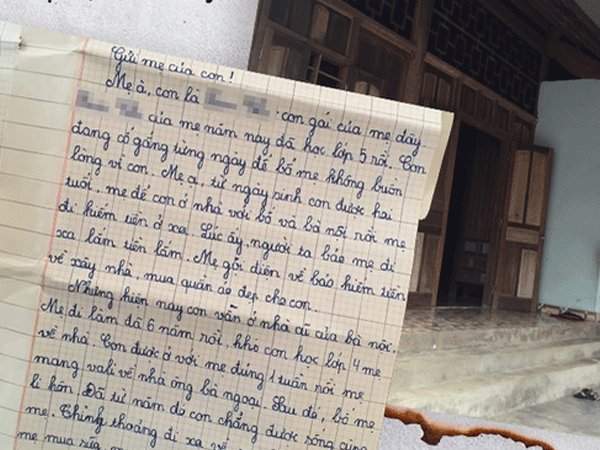 Gửi mẹ của con!
Mẹ à, con là con gái của mẹ đây.
của mẹ năm nay đã học lớp 5 rồi. Con
đang cố gắng từng ngày để bố mẹ không buồn
lòng vì con. Mẹ ạ, từ ngày sinh con được hai
tuổi, mẹ để con ở nhà với bố và bà nội rồi mẹ
đi kiếm tiền ở xa. Lúc ấy, người ta bảo mẹ đi
xa lắm tiền lắm. Mẹ gọi điện về bảo kiếm tiền
về xây nhà, mua quần áo đẹp cho con.
Nhưng hiện nay con vẫn ở nhà cũ của bà nội.
Mẹ đi làm đã 6 năm rồi, khi con học lớp 4 mẹ
về nhà. Con được ở với mẹ đúng 1 tuần rồi mẹ
mang vali về nhà ông bà ngoại. Sau đó, bố mẹ
li hôn. Đã từ năm đó con chẳng được sống cùng
mẹ. Thỉnh thoảng đi xa về
mẹ mua sữa,